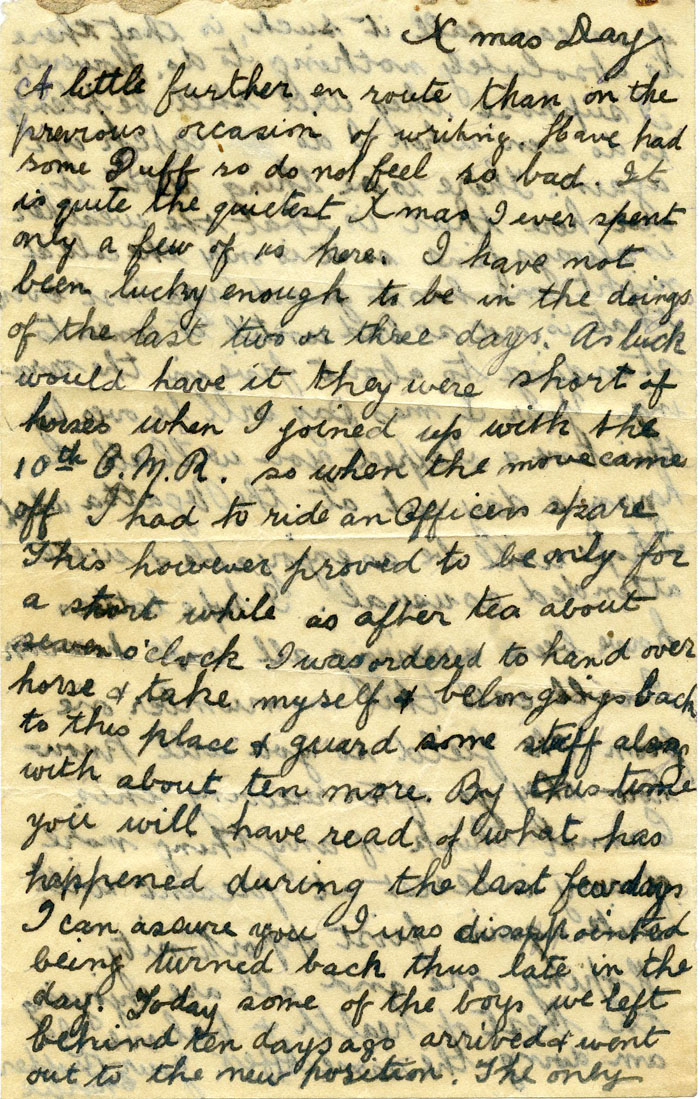 X mas Day
A little further en route than on the
previous occasion of writing. Have had
some Duff so do not feel so bad. It
is quite the quietest Xmas I ever spent
only a few of us here. I have not
been lucky enough to be in the doings
of the last two or three days. As luck
would have it they were short of
horses when I joined up with the
10th C.M.R. so when the move came
off I had to ride an Officers spare
This however proved to be only for
a short while as after tea about
seven o'clock I was ordered to hand over
horse & take myself & belongings back
to this place & guard some stuff along
with about ten more. By this time
you will have read of what has
happened during the last few days
I can assure you I was disappointed
being turned back thus late in the
day. Today some of the boys we left
behind ten days ago arrived & went
out to the new position. The only